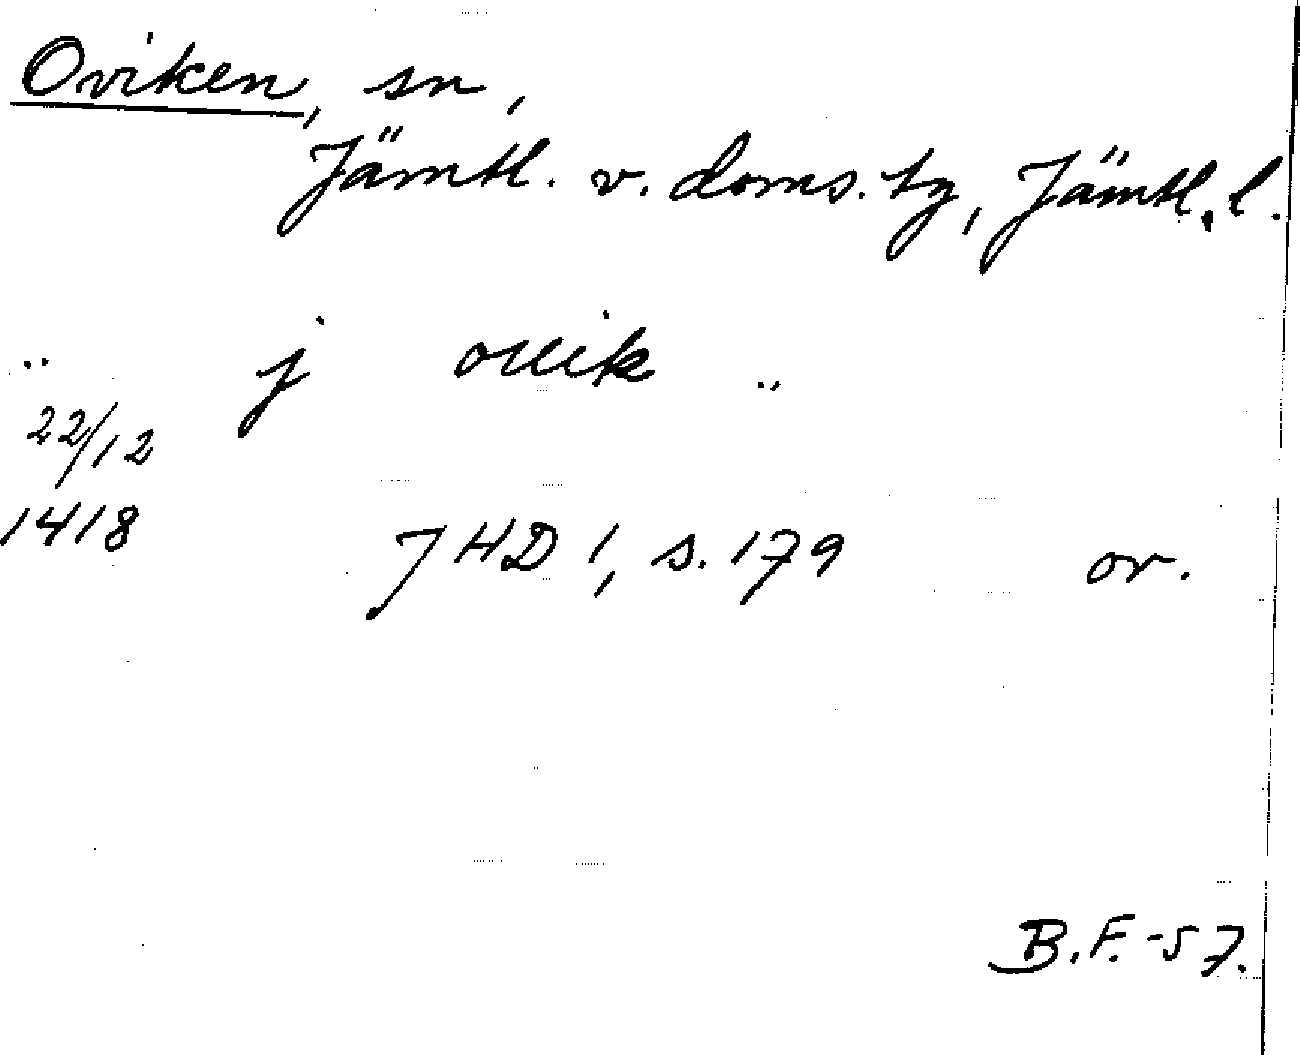 Oviken, sn,
Jämtl. v. doms. tg, Jämtl. l.
.. j ouik ..
22/12
1418 JHD 1, s. 179 or.
B.F. -57.